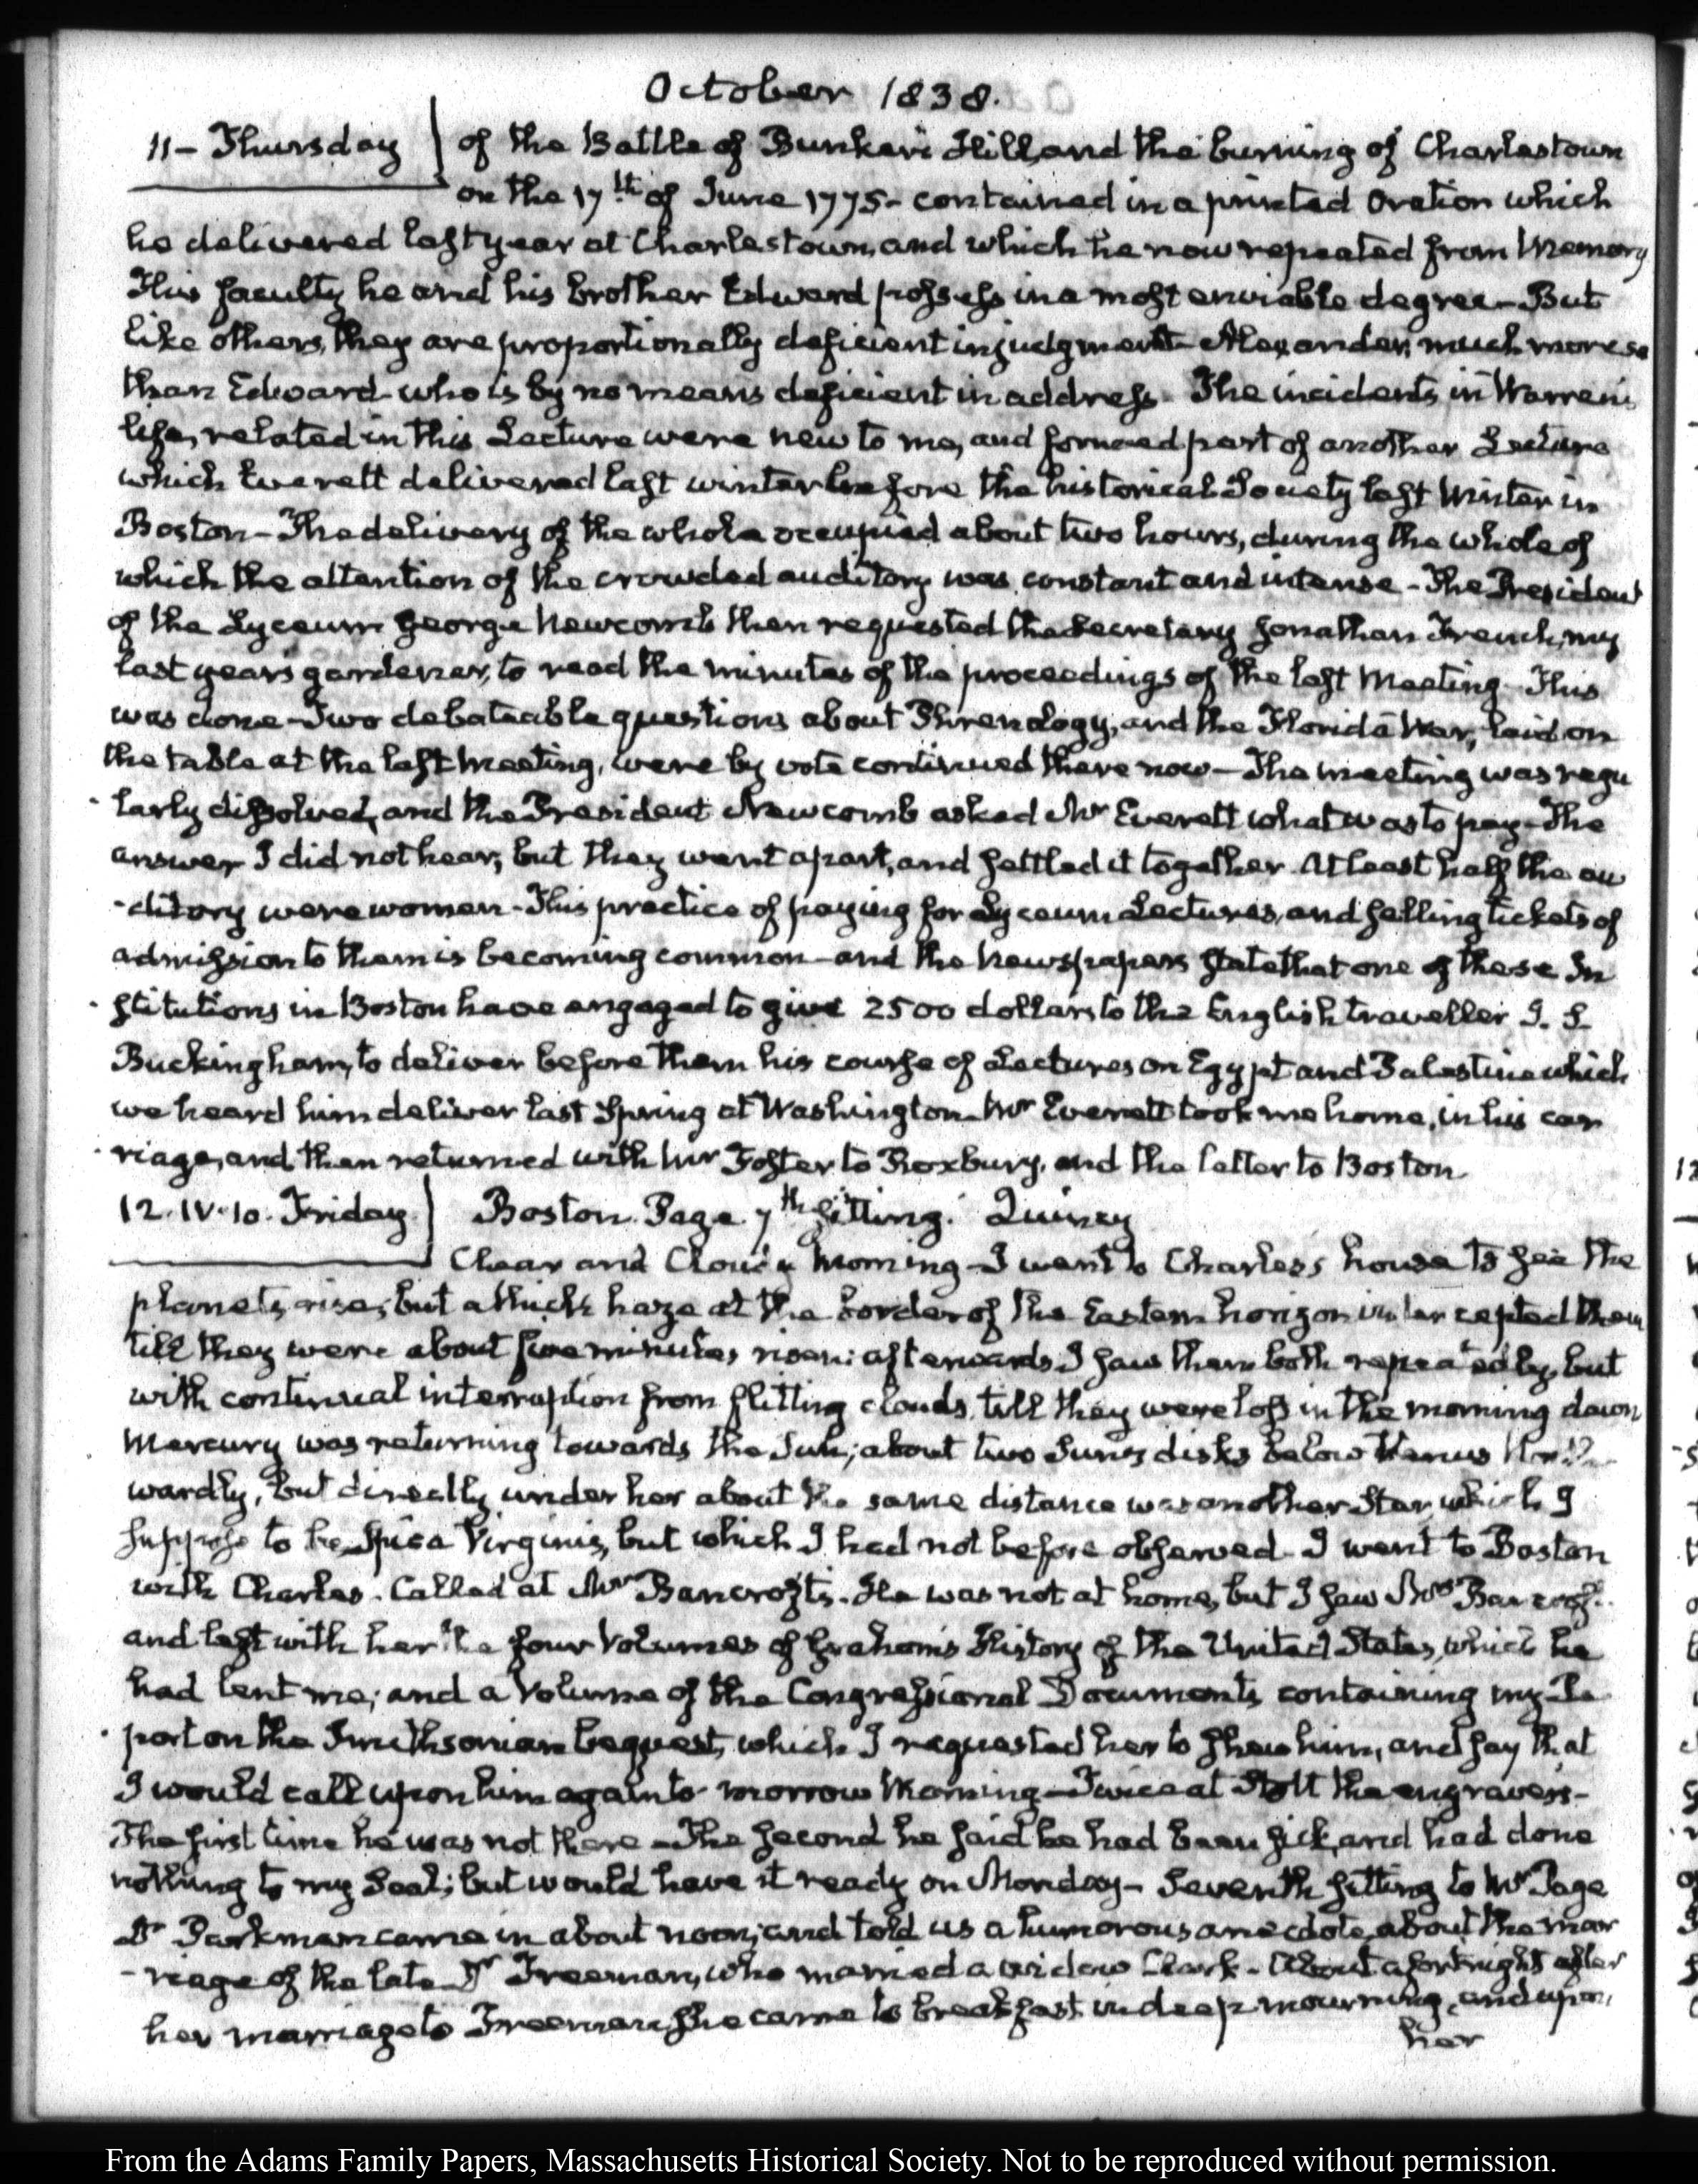 October 1838.
11 – Thursday of the Battle of Bunker's Hill, and the burning of Charlestown
on the 17th of June 1775 – contained in a printed Oration which
he delivered last year at Charlestown, and which he now repeated from Memory
This faculty he and his brother Edward possess in a most enviable degree – But
like others, they are proportionally deficient in judgment – Alexander, much more so
than Edward who is by no means deficient in address – The incidents in Warren's
life, related in this Lecture were new to me, and formed part of another Lecture
which Everett delivered last winter before the historical Society last Winter in
Boston – The delivery of the whole occupied about two hours, during the whole of
which the attention of the crowded auditory was constant and intense – The President
of the Lyceum George Newcomb then requested the Secretary Jonathan French, my
last year's gardener, to read the minutes of the proceedings of the last Meeting – This
was done – Two debateable questions about Phrenology, and the Florida War, laid on
the table at the last Meeting, were by vote continued there now – The meeting was regu
-larly dissolved, and the President Newcomb asked Mr Everett what was to pay – The
answer I did not hear, but they went apart, and settled it together. At least half the au
-ditory were women – This practice of paying for Lyceum Lectures, and selling tickets of
admission to them is becoming common – and the Newspapers state that one of these In
-stitutions in Boston have engaged to give 2500 dollars to the English traveller J. S.
Buckingham, to deliver before them his course of Lectures on Egypt and Palestine which
we heard him deliver last Spring at Washington – Mr Everett took me home, in his car
-riage, and then returned with Mr Foster to Roxbury, and the latter to Boston
12. IV. 10. Friday Boston. Page 7th sitting. Quincy
Clear and Cloudy Morning – I went to Charles's house to see the
planets rise; but a thick haze at the border of the Eastern horizon intercepted them
till they were about five minutes risen: afterwards I saw them both repeatedly, but
with continual interruption from flitting clouds, till they were lost in the morning dawn
Mercury was returning towards the Sun; about two Sun's disks below Venus North
wardly, but directly under her about the same distance was another Star, which I
suppose to be Spica Virginis, but which I had not before observed. I went to Boston
with Charles. Called at Mr Bancroft's. He was not at home, but I saw Mrs Bancroft
and left with her the four Volumes of Graham's History of the United States, which he
had lent me; and a Volume of the Congressional Documents containing my Re
-port on the Smithsonian bequest, which I requested her to shew him, and say that
I would call upon him again to-morrow Morning – Twice at Stott the engravers –
The first time he was not there – The second he said he had been sick, and had done
nothing to my Seal; but would have it ready on Monday – Seventh sitting to Mr Page
Dr Parkman came in about noon; and told us a humorous anecdote, about the mar
-riage of the late Dr Freeman, who married a widow Clark – About a fortnight after
her marriage to Freeman, she came to breakfast in deep mourning, and upon
her
From the Adams Family Papers, Massachusetts Historical Society. Not to be reproduced without permission.